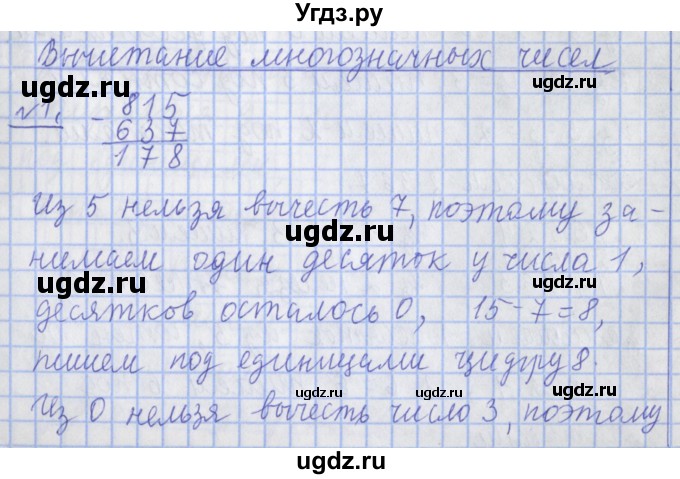 Угдз.ру
Вычитание многозначных чисел
№1. - 815
637
178
Из 5 нельзя вычесть 7, поэтому за-
нимаем один десяток у числа 1,
десятков осталось 0, 15-7=8,
пишем под единицами цифру 8.
Из 0 нельзя вычесть число 3, поэтому
ugdz.ru
ugdz.ru
ugdz.ru
ugdz.ru
ugdz.ru
ugdz.ru
ugdz.ru
ugdz.ru
ugdz.ru
ugdz.ru
ugdz.ru
ugdz.ru
ugdz.ru